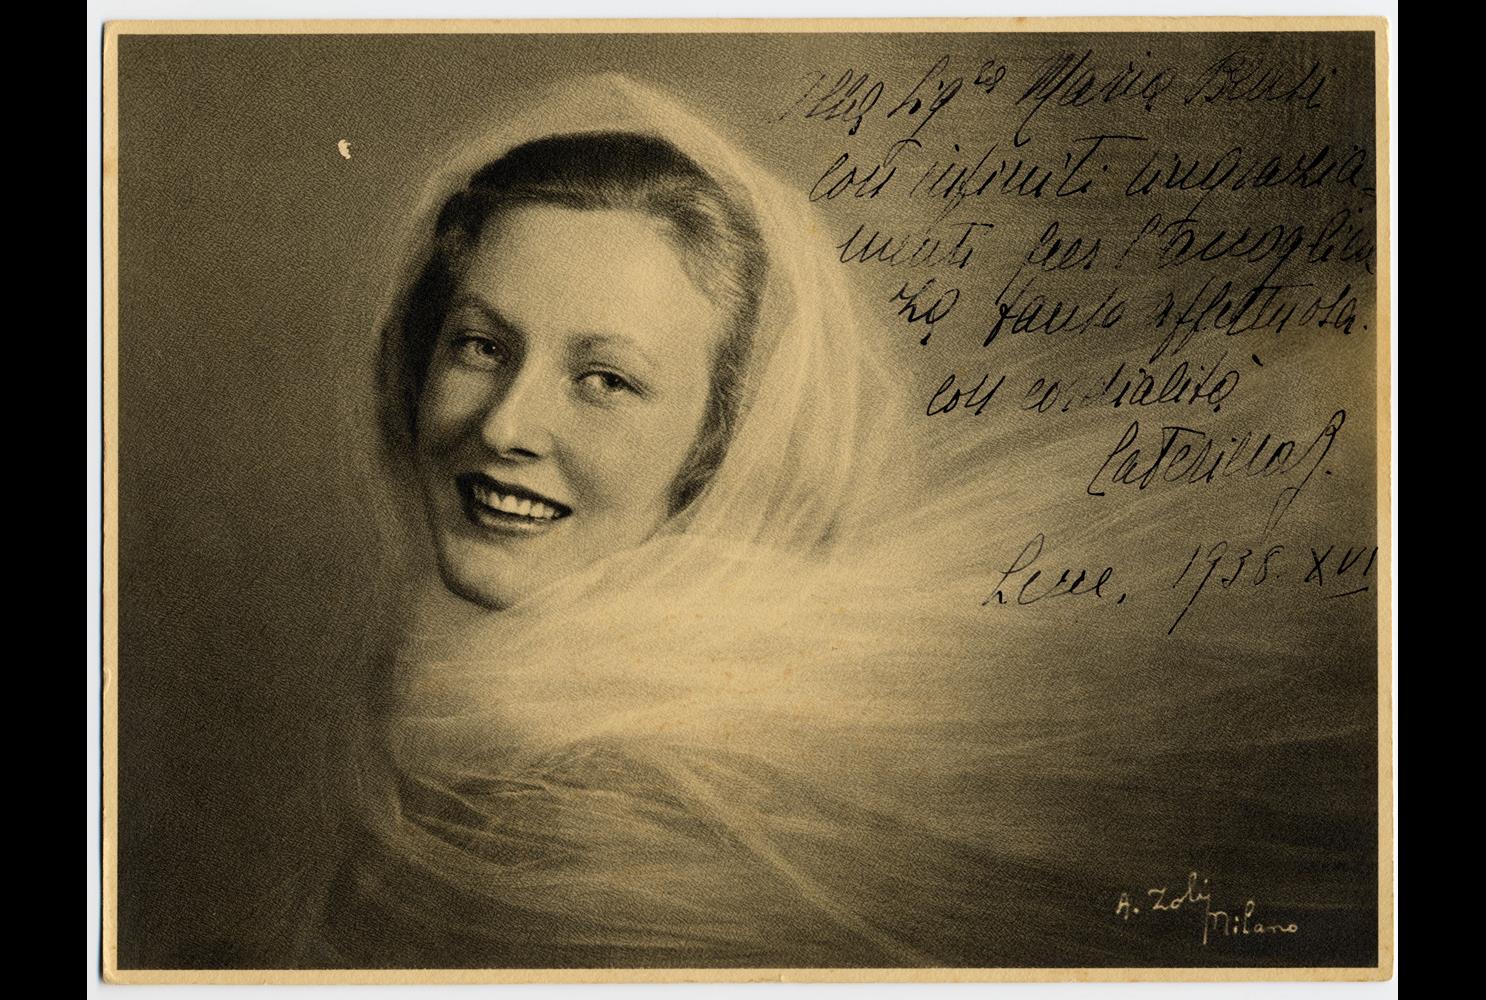 Alla Sig.ra Maria
con infiniti ringrazia-
menti per l'accoglien
za tanto affettuosa.
con cordialità
Caterina B.
Lecce, 1938. XVI
A. Zoli
Milano